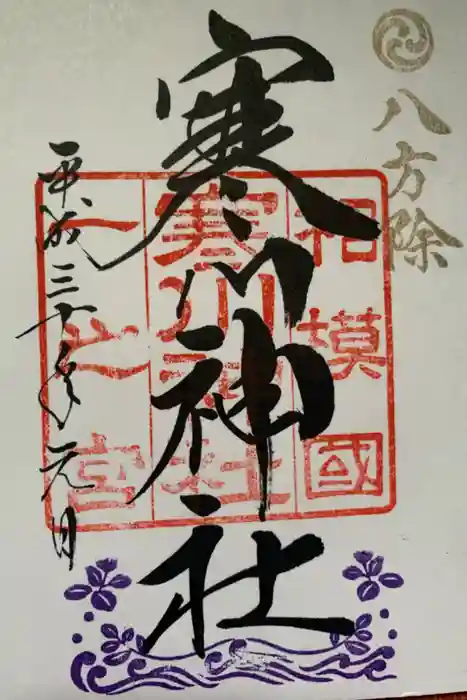 八方除
寒川神社
相模國
寒川神社
一之宮
平成三十年元日